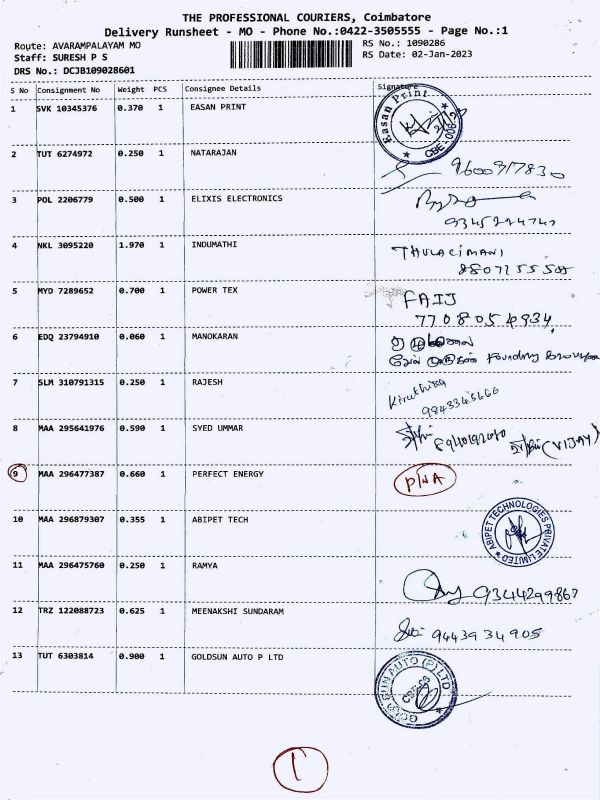 THE PROFESSIONAL COURIERS, Coimbatore
Delivery Runsheet - MO - Phone No.:0422-3505555 - Page No.:1
Route: AVARAMPALAYAM MO RS No.: 1090286
Staff: SURESH P S RS Date: 02-Jan-2023
DRS No.: DCJB109028601
S No Consignment No Weight PCS Consignee Details Signature
1 SVK 10345376 0.370 1 EASAN PRINT Easan Print CBE-006
2 TUT 6274972 0.250 1 NATARAJAN
9600917830
3 POL 2206779 0.500 1 ELIXIS ELECTRONICS
4 NKL 3095220 1.970 1 INDUMATHI THULACIMANI
5 MYD 7289652 0.700 1 POWER TEX FAIJ
7708054934
6 EDQ 23794910 0.060 1 MANOKARAN
7 SLM 310791315 0.250 1 RAJESH Kiruthika
9843345666
8 MAA 295641976 0.590 1 SYED UMMAR (VIJAY)
9 MAA 296477387 0.660 1 PERFECT ENERGY P/NA
10 MAA 296879307 0.355 1 ABIPET TECH ABIPET TECHNOLOGIES PRIVATE LIMITED
11 MAA 296475760 0.250 1 RAMYA
9344299867
12 TRZ 122088723 0.625 1 MEENAKSHI SUNDARAM
9443934905
13 TUT 6303814 0.900 1 GOLDSUN AUTO P LTD SUN AUTO (P) LTD
1